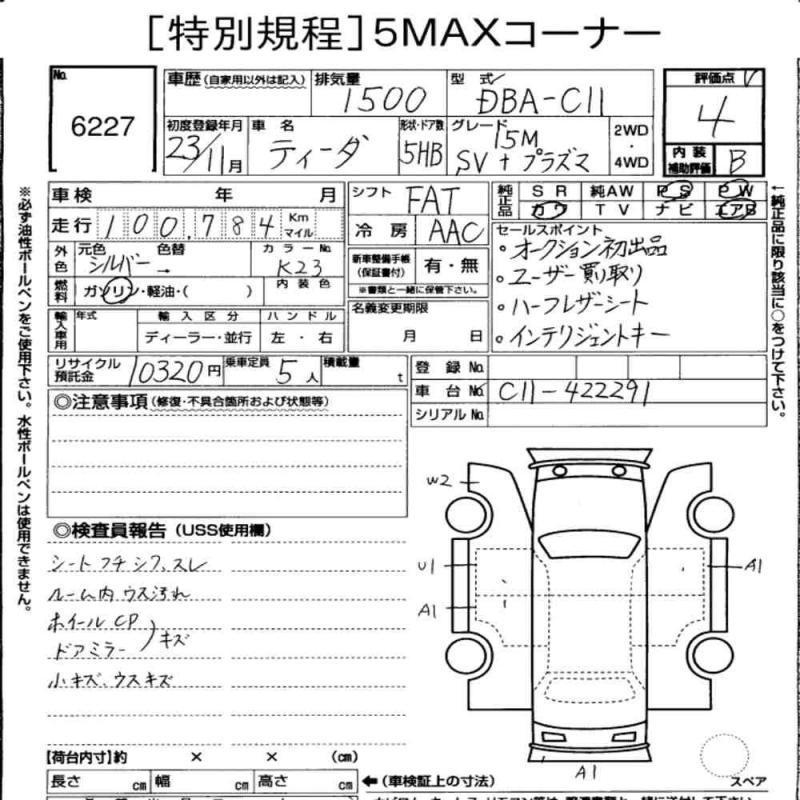 [特別規程]5MAXコーナー
No. 6227
車歴 (自家用以外は記入)
排気量 1500
型式 DBA-C11
評価点 4
初度登録年月 23/11月
車名 ティーダ
形状・ドア数 5HB
グレード 15M SV+プラズマ
2WD ・ 4WD
内装補助評価 B
車検 年 月
シフト FAT
純正品 SR 純AW PS PW
カワ TV ナビ エアB
走行 100,784 Km マイル
冷房 AAC
セールスポイント
・オークション初出品
・ユーザー買い取り
・ハーフレザーシート
・インテリジェントキー
外色 元色 シルバー 色替 → カラーNo. K23
新車整備手帳 (保証書付) 有・無
※書類と一緒に保管下さい。
燃料 ガソリン・軽油・( ) 内装色
名義変更期限 月 日
輸入車用 年式 輸入区分 ハンドル
ディーラー・並行 左・右
リサイクル預託金 10320円 乗車定員 5人 積載量 t
登録No.
車台No. C11-422291
シリアルNo.
◎注意事項 (修復・不具合箇所および状態等)
◎検査員報告 (USS使用欄)
シートフチシワ、スレ
ルーム内ウス汚れ
ホイールCP
ドアミラー キズ
小キズ、ウスキズ
W2
U1 A1
A1
A1
スペア
【荷台内寸】約 × × (cm)
長さ cm 幅 cm 高さ cm
←(車検証上の寸法)
※必ず油性ボールペンをご使用下さい。水性ボールペンは使用できません。
←純正品に限り該当に○をつけて下さい。